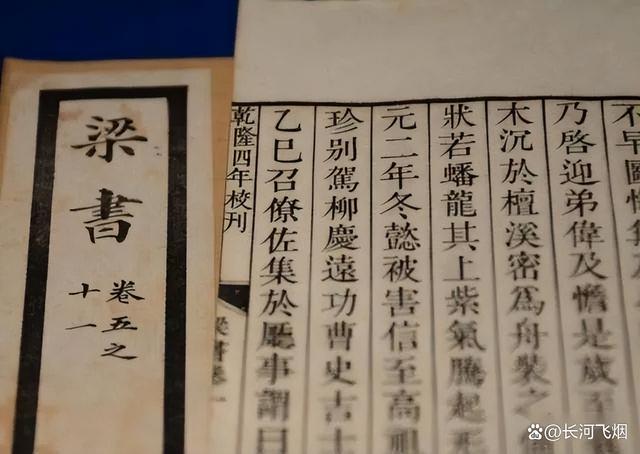 不早圖悔無
乃啓迎弟偉及憺是歲至
木沉於檀溪密爲舟裝之
狀若蟠龍其上紫氣騰起形
元二年冬懿被害信至高祖
珍別駕柳慶遠功曹史吉士
乙巳召僚佐集於廳事謂曰
乾隆四年校刊
梁書卷
梁書
卷五之
十一
@长河飞烟